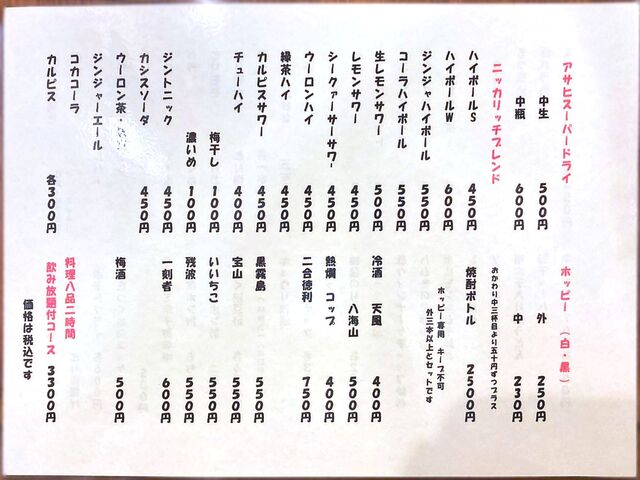 アサヒスーパードライ
中生 500円
中瓶 600円
ニッカリッチブレンド
ハイボールS 450円
ハイボールW 600円
ジンジャハイボール 550円
コーラハイボール 550円
生レモンサワー 500円
レモンサワー 450円
シークァーサーサワー 450円
ウーロンハイ 450円
緑茶ハイ 450円
カルピスサワー 450円
チューハイ 400円
梅干し 100円
濃いめ 100円
ジントニック 450円
カシスソーダ 450円
ウーロン茶・
ジンジャーエール
コカコーラ
カルピス 各300円
ホッピー (白・黒)
外 250円
中 230円
おかわり中三杯目より五十円ずつプラス
焼酎ボトル 2500円
ホッピー専用 キープ不可
外三本以上とセットです
冷酒 天風 400円
八海山 500円
熱燗 コップ 400円
二合徳利 750円
黒霧島 550円
宝山 550円
いいちこ 550円
残波 550円
一刻者 600円
梅酒 500円
料理八品二時間
飲み放題付コース 3300円
価格は税込です